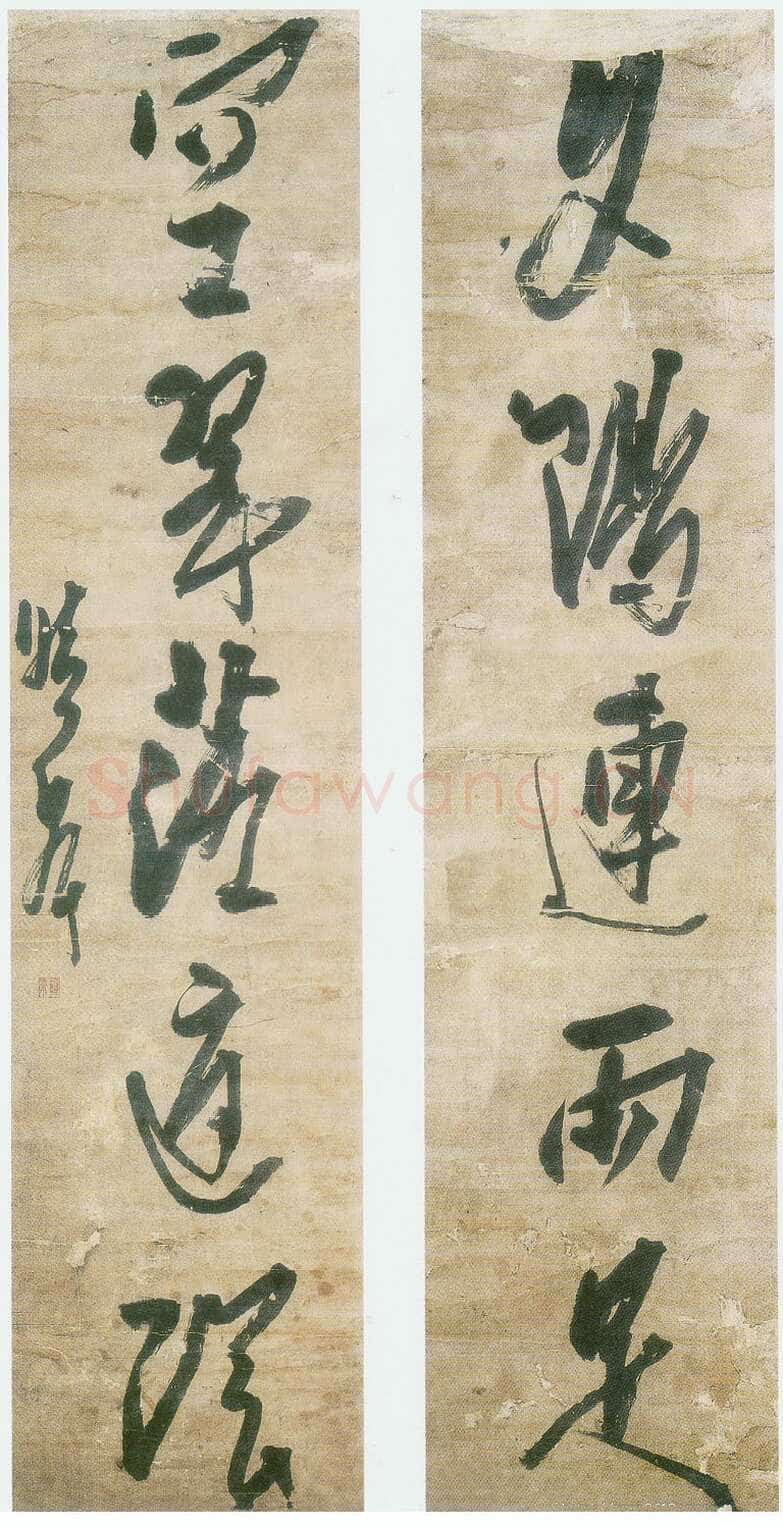 夕陽連雨足
空翠落庭陰
Shufawang.CN